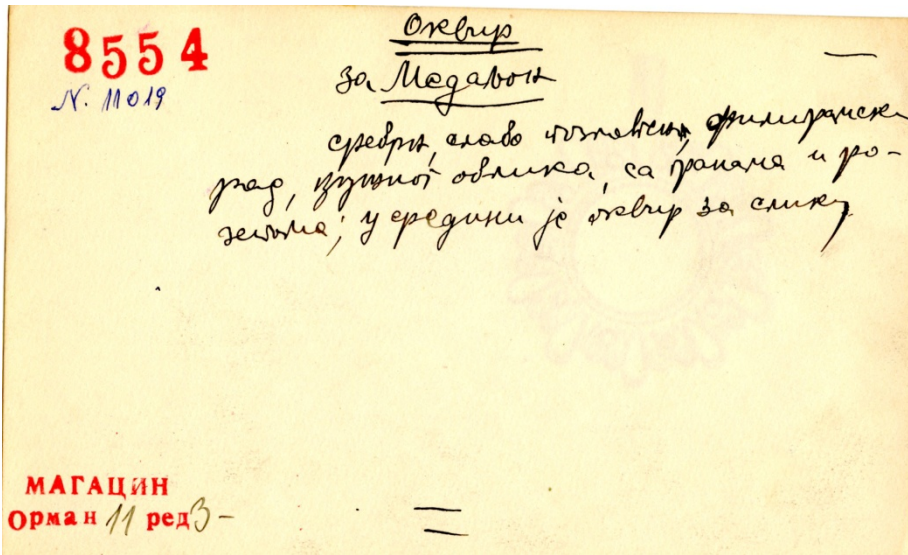 8554
Оквир
N. 11019
за Медаљон
сребрн, слабо позлаћен, филигрански
рад, кружног облика, са гранама и ро-
зетама; у средини је оквир за слику
МАГАЦИН
Орман 11 ред 3 -